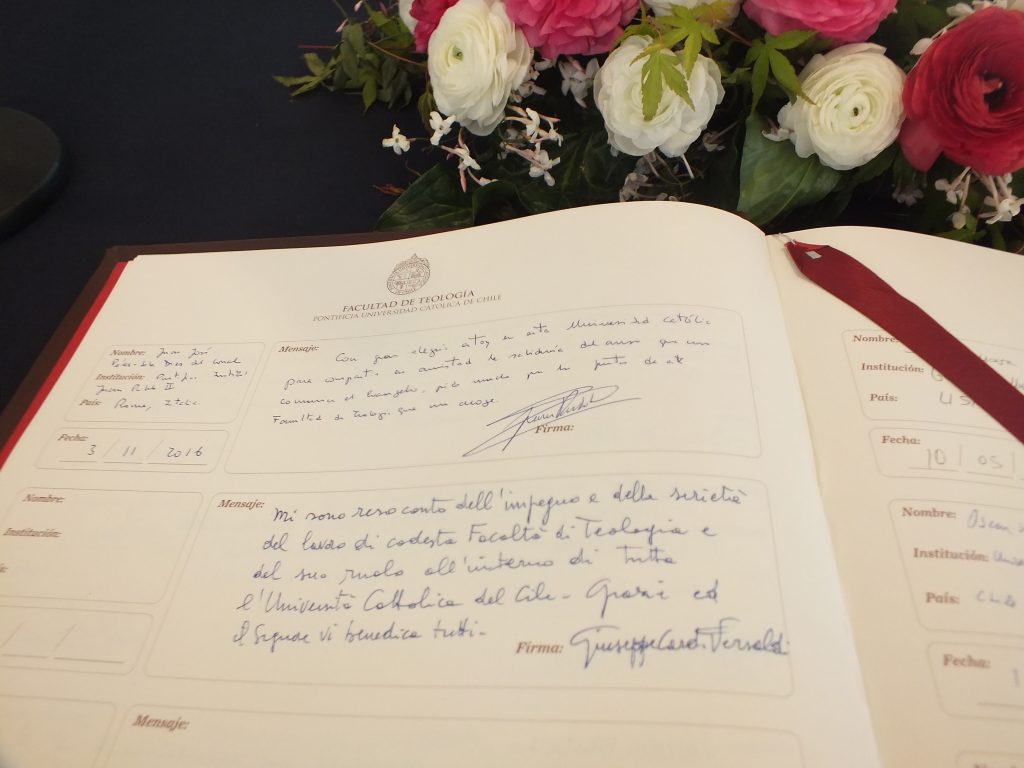 FACULTAD DE TEOLOGÍA
PONTIFICIA UNIVERSIDAD CATOLICA DE CHILE
Nombre: Juan José
Institución:
Juan Pablo II
País: Roma, Italia
Fecha:
3 / 11 / 2016
Mensaje: Con gran alegría estoy en esta Universidad Católica
para compartir en amistad la del que nos
comunica el Evangelio, pido mucho por los de esta
Facultad de Teología que me acoge.
Firma:
Nombre:
Institución:
Mensaje: Mi sono reso conto dell'impegno e della serietà
del lavoro di codesta Facoltà di Teologia e
del suo ruolo all'interno di tutta
l'Università Cattolica del Cile - Grazie ed
il Signore vi benedica tutti -
Firma: Giuseppe Card. Versaldi
Mensaje:
Institución:
País: USA
Fecha:
10 / 05 /
Nombre: Oscar
Institución:
País: Chile
Fecha: